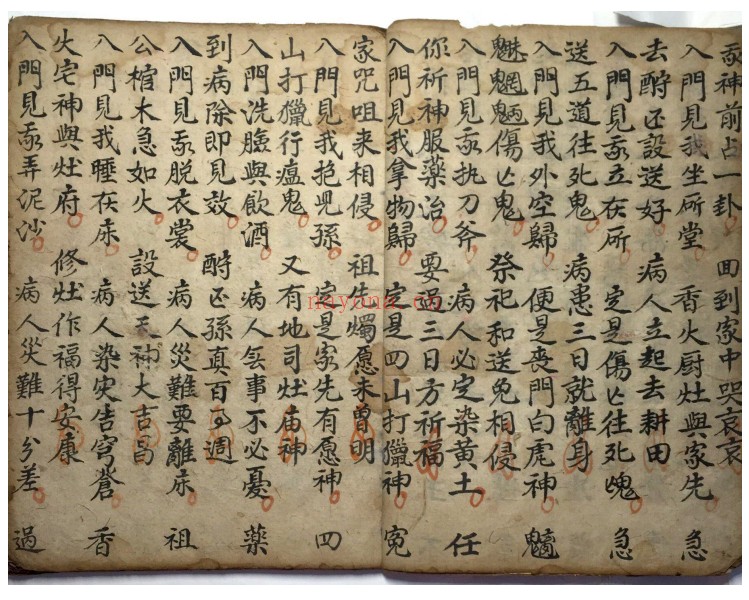 我神前占一卦 回到家中哭哀哀
入門見我坐所堂 香火厨灶與家先 急
去酧还設送好 病人立起去耕田
入門見我立在所 定是傷亡往死鬼 急
送五道往死鬼 病患三日就離身
入門見我外空歸 便是喪門白虎神 魑
魅魍魎傷亡鬼 祭祀和送免相侵
入門見我执刀斧 病人必定染黄土 任
你祈神服藥治 要過三日方祈福
入門見我拿物歸 定是四山打獵神 冤
家咒咀来相侵 祖先燭愿未曾明
入門見我抱児孫 定是家先有愿神 四
山打獵行瘟鬼 又有地司灶庙神
入門洗臉與飲酒 病人無事不必憂 藥
到病除即見效 酧还孫真百事週
入門見我脱衣裳 病人災難要離床 祖
公棺木急如火 設送天神大吉昌
入門見我睡在床 病人染灾告穹蒼 香
火宅神與灶府 修灶作福得安康
入門見我弄泥沙 病人災難十分差 過